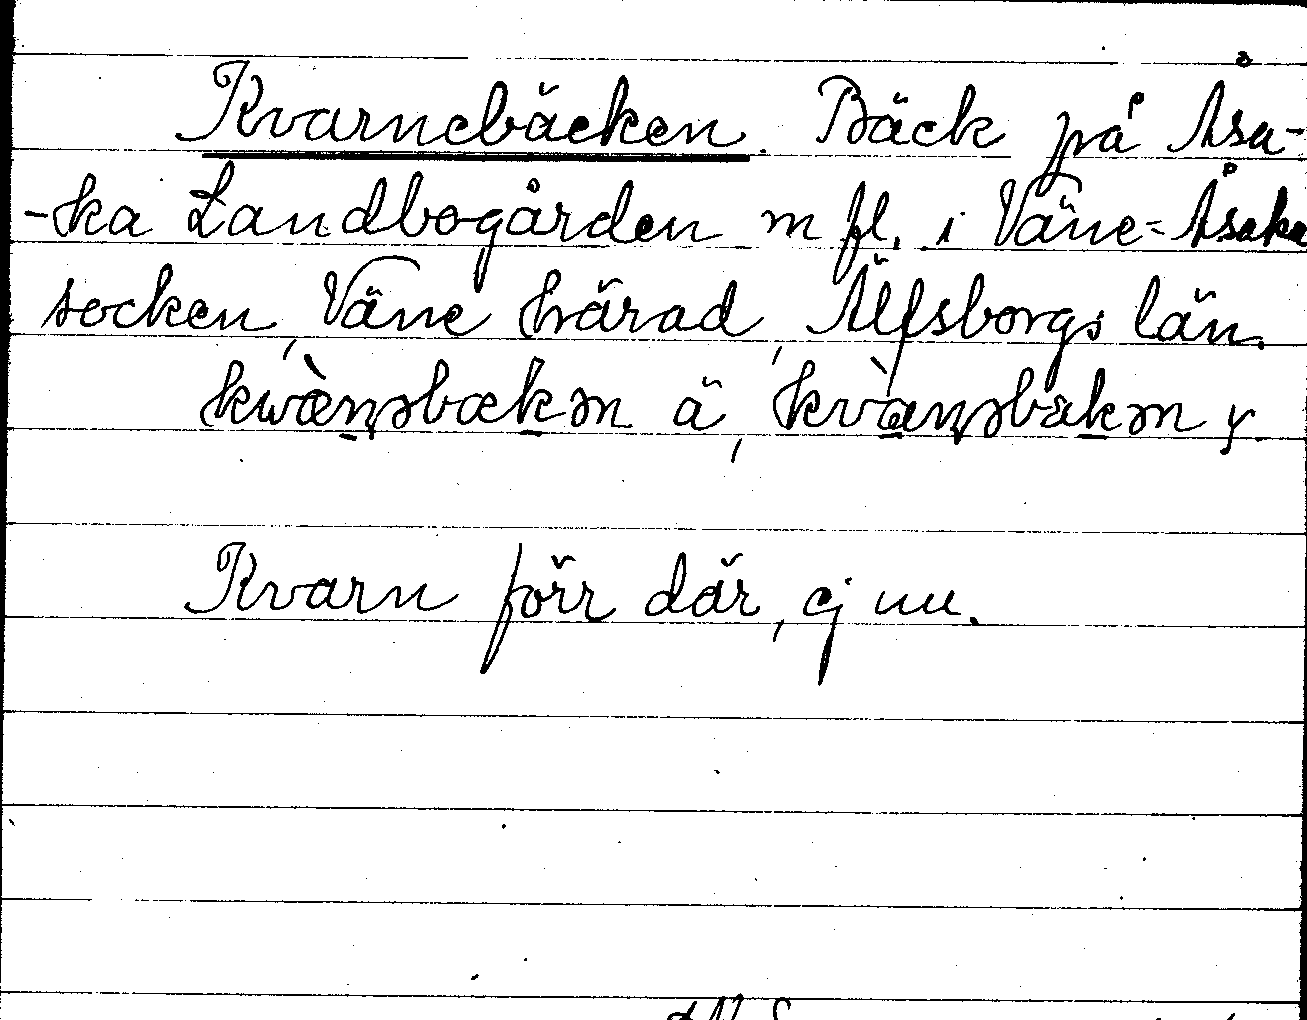 Kvarnebäcken. Bäck på Åsa-
-ka Landbogården m fl. i Väne-Åsaka
socken, Väne härad, Älfsborgs län.
kwæ̀nəbækən ä, kvànəbäkən y.
Kvarn förr där, ej nu.